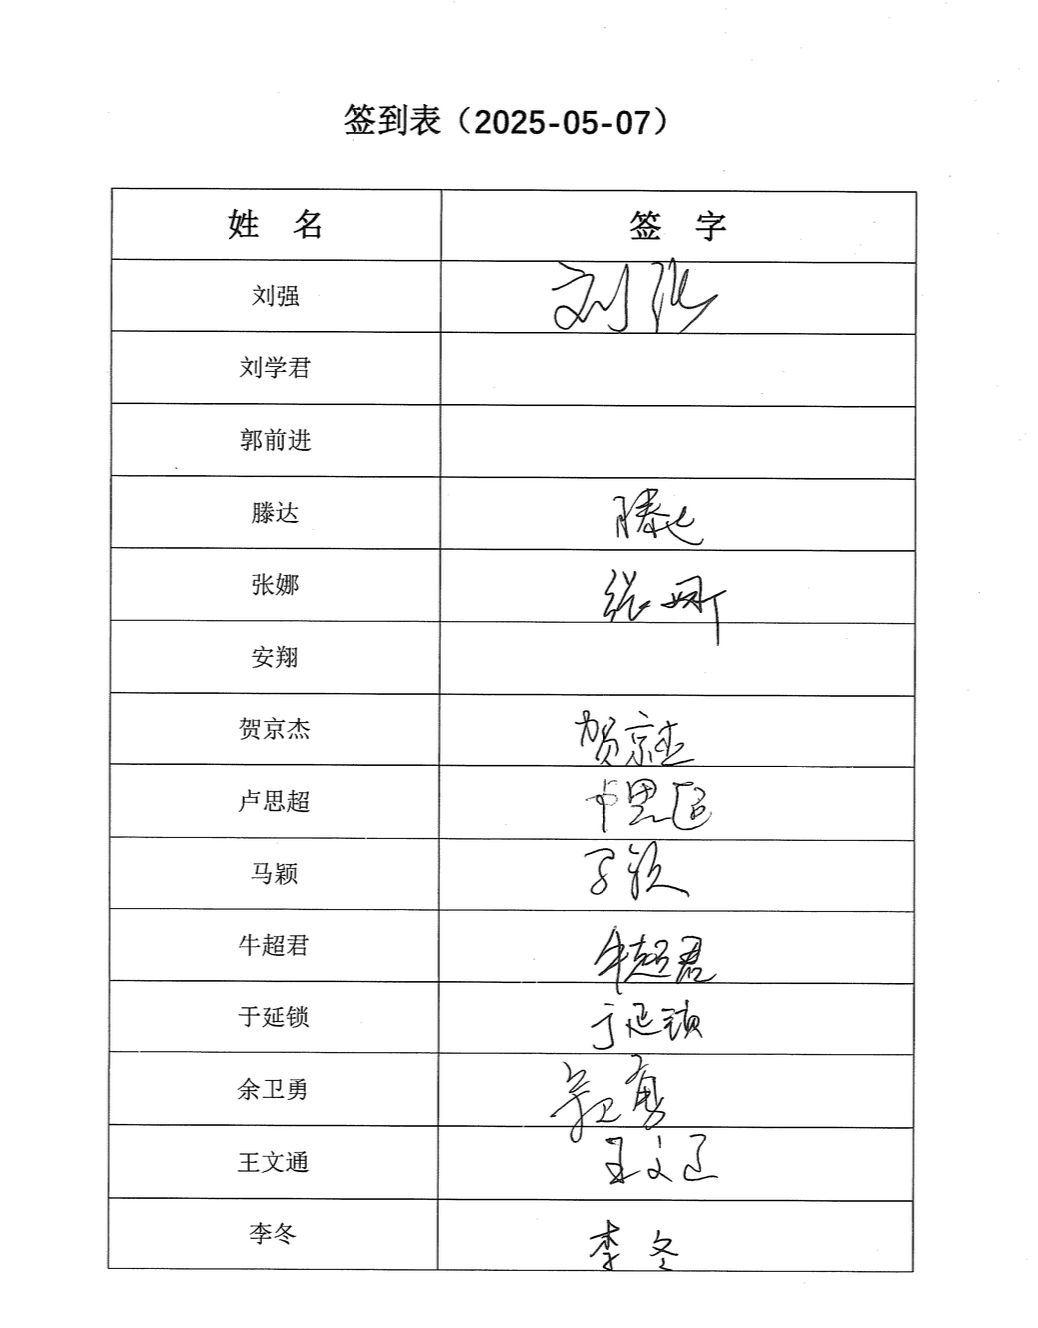 签到表（2025-05-07）
姓 名 签 字
刘强 刘强
刘学君
郭前进
滕达 滕达
张娜 张娜
安翔
贺京杰 贺京杰
卢思超 卢思超
马颖 马颖
牛超君 牛超君
于延锁 于延锁
余卫勇 余卫勇
王文通 王文通
李冬 李冬